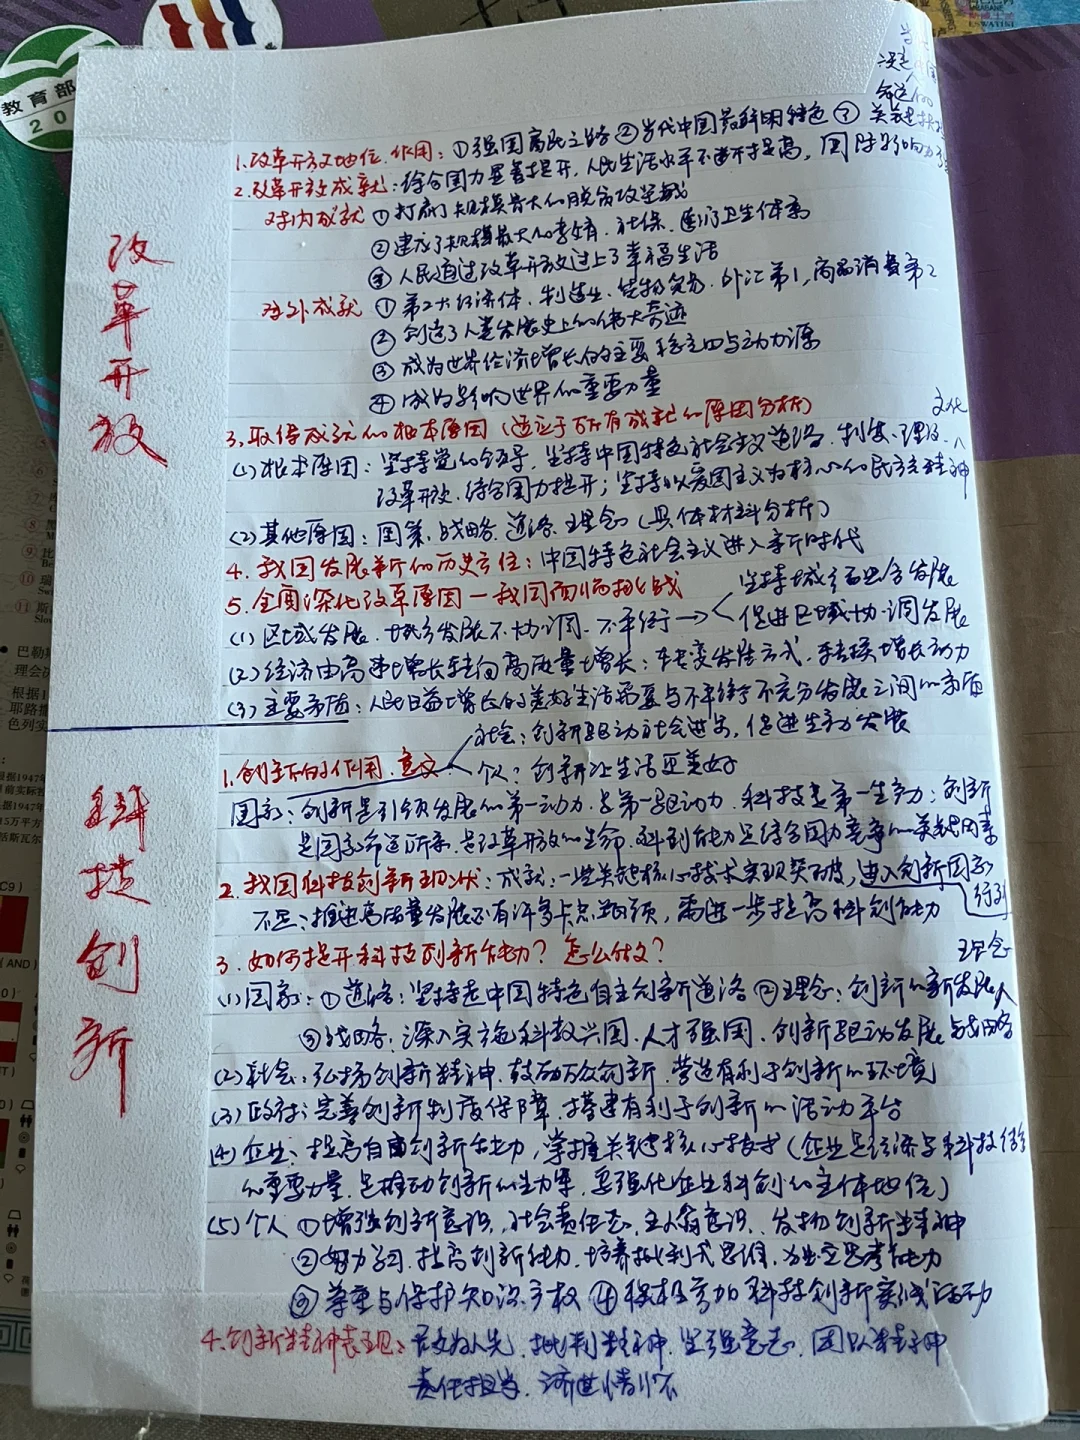 教育部
改革开放
1.改革开放地位.作用：①强国富民之路 ②当代中国最鲜明特色 ③关键抉择
2.改革开放成就：综合国力显著提升，人民生活水平不断提高，国际影响力
对内成就 ①打赢了规模最大的脱贫攻坚战
②建成了规模最大的教育．社保．医疗卫生体系
③人民通过改革开放过上了幸福生活
对外成就 ①第2大经济体．制造业．货物贸易．外汇第1，商品消费第2
②创造了人类发展史上的伟大奇迹
③成为世界经济增长的主要稳定器与动力源
④成为影响世界的重要力量
3.取得成就的根本原因（适应于所有成就的原因分析）
文化
(1)根本原因：坚持党的领导．坚持中国特色社会主义道路．制度．理论．
改革开放．综合国力提升；坚持以爱国主义为核心的民族精神
(2)其他原因：国策．战略．道路．理念（具体材料分析）
4.我国发展新的历史方位：中国特色社会主义进入新时代
5.全面深化改革原因—我国面临挑战
坚持城乡融合发展
(1)区域发展．城乡发展不协调．不平衡→促进区域协调发展
(2)经济由高速增长转向高质量增长：转变发展方式．转换增长动力
(3)主要矛盾：人民日益增长的美好生活需要与不平衡不充分发展之间的矛盾
科技创新
社会：创新驱动社会进步，促进生产力发展
1.创新的作用．意义
个人：创新让生活更美好
国家：创新是引领发展的第一动力．是第一驱动力．科技是第一生产力；创新
是国家命运所系．是改革开放的生命．科创能力是综合国力竞争的关键因素
2.我国科技创新现状：成就：一些关键核心技术实现突破，进入创新国家
行列
不足：推进高质量发展还有许多卡点瓶颈，需进一步提高科创能力
3.如何提升科技创新能力？怎么做？
理念
(1)国家：①道路：坚持走中国特色自主创新道路 ②理念：创新的新发展
③战略：深入实施科教兴国．人才强国．创新驱动发展战略
(2)社会：弘扬创新精神．鼓励万众创新．营造有利于创新的环境
(3)政府：完善创新制度保障．搭建有利于创新的活动平台
(4)企业：提高自主创新能力，掌握关键核心技术（企业是经济与科技结合
的重要力量．是推动创新的生力军．要强化企业科创的主体地位）
(5)个人 ①增强创新意识．社会责任感．主人翁意识．发扬创新精神
②努力学习．提高创新能力．培养批判式思维．独立思考能力
③尊重与保护知识产权 ④积极参加科技创新实践活动
4.创新精神表现：敢为人先．批判精神．坚强意志．团队精神
责任担当．济世情怀